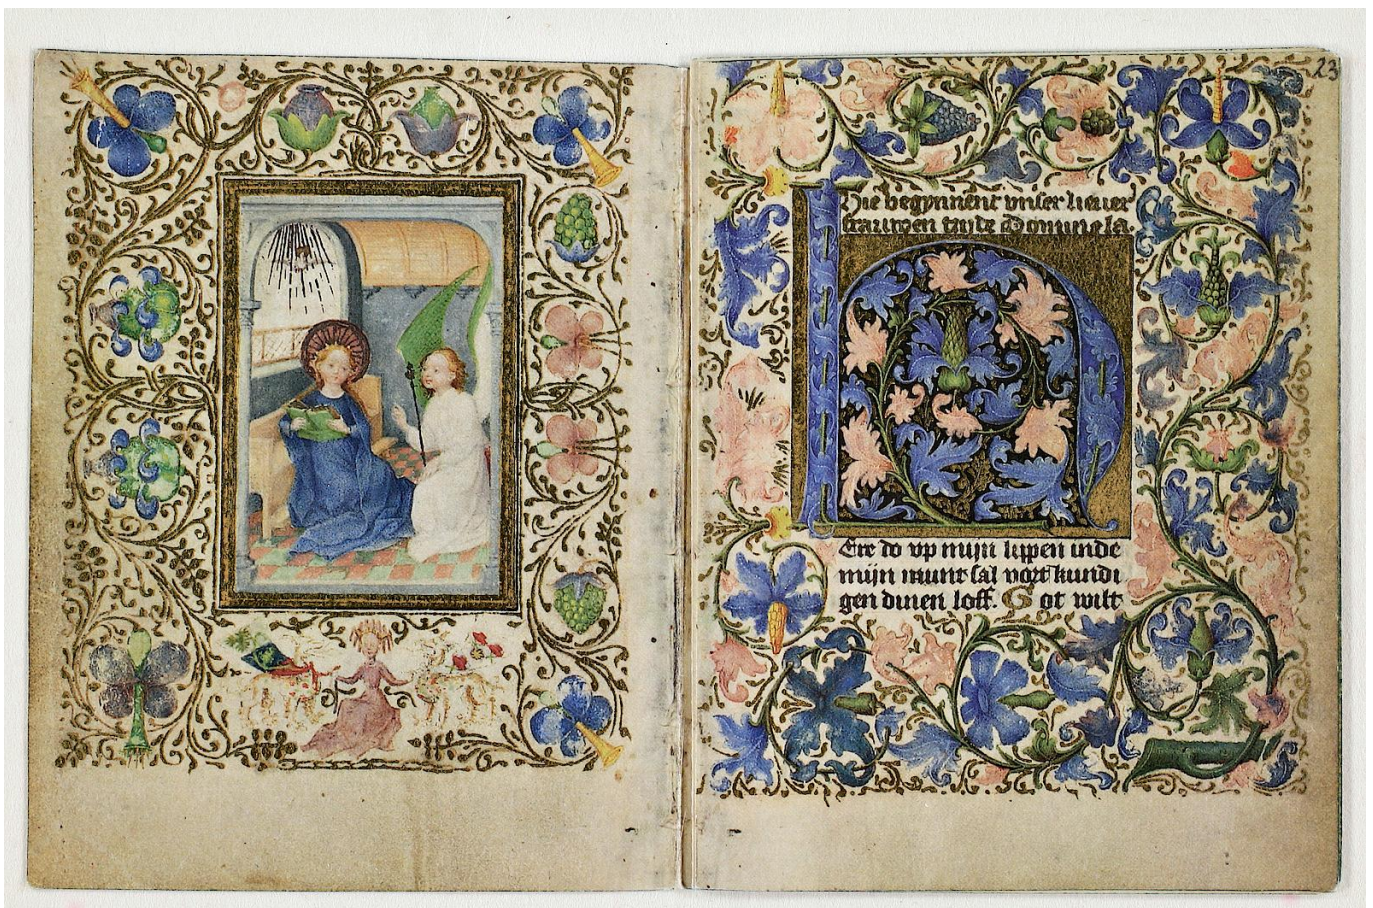 23
Hie begynnent unser liever
frauwen tzijde
Ere do vp mijn lippen inde
mijn munt sal vort kundi
gen dinen loff. Got wilt